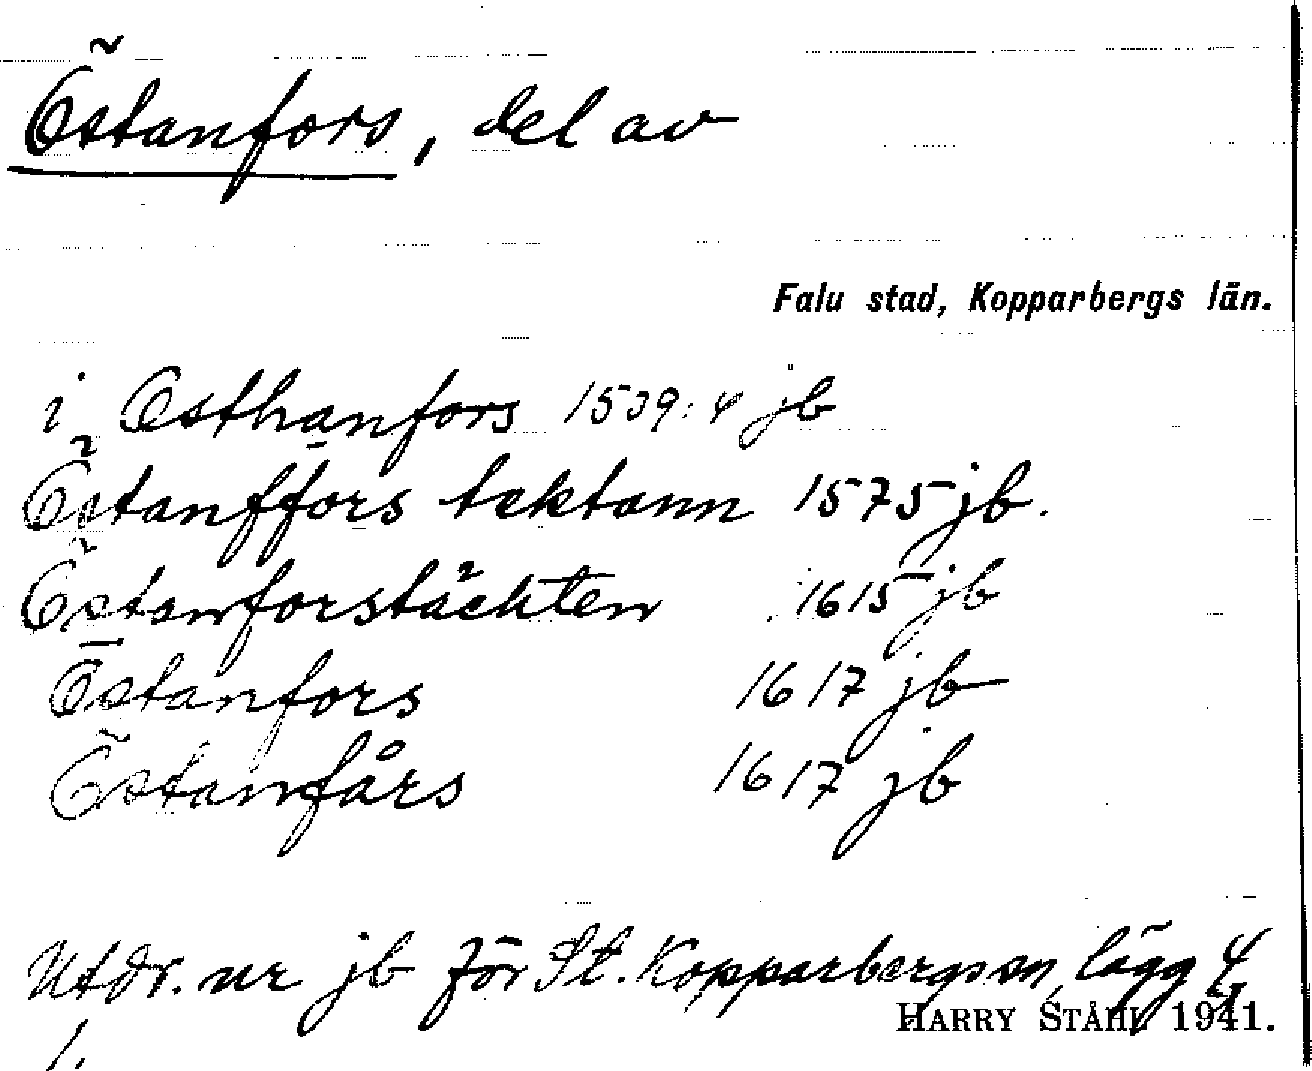 Östanfors, del av
Falu stad, Kopparbergs län.
i Østhanfors 1539:4 jb
Östanffors tektann 1575 jb.
Östanforstäckten 1615 jb
Östanfors 1617 jb
Östanfårs 1617 jb
Utdr. ur jb för St. Kopparbergs sn, lägg 4
HARRY STÅHL 1941.
1.